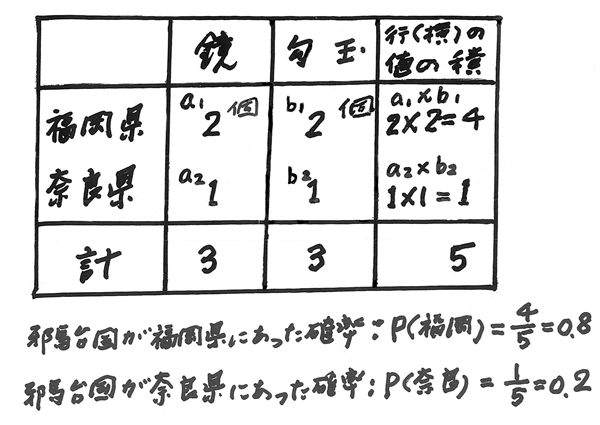 鏡 勾玉 行(横)の
値の積
福岡県 a₁ 2個 b₁ 2個 a₁×b₁
2×2=4
奈良県 a₂ 1 b₂ 1 a₂×b₂
1×1=1
計 3 3 5
邪馬台国が福岡県にあった確率:P(福岡)=4/5=0.8
邪馬台国が奈良県にあった確率:P(奈良)=1/5=0.2